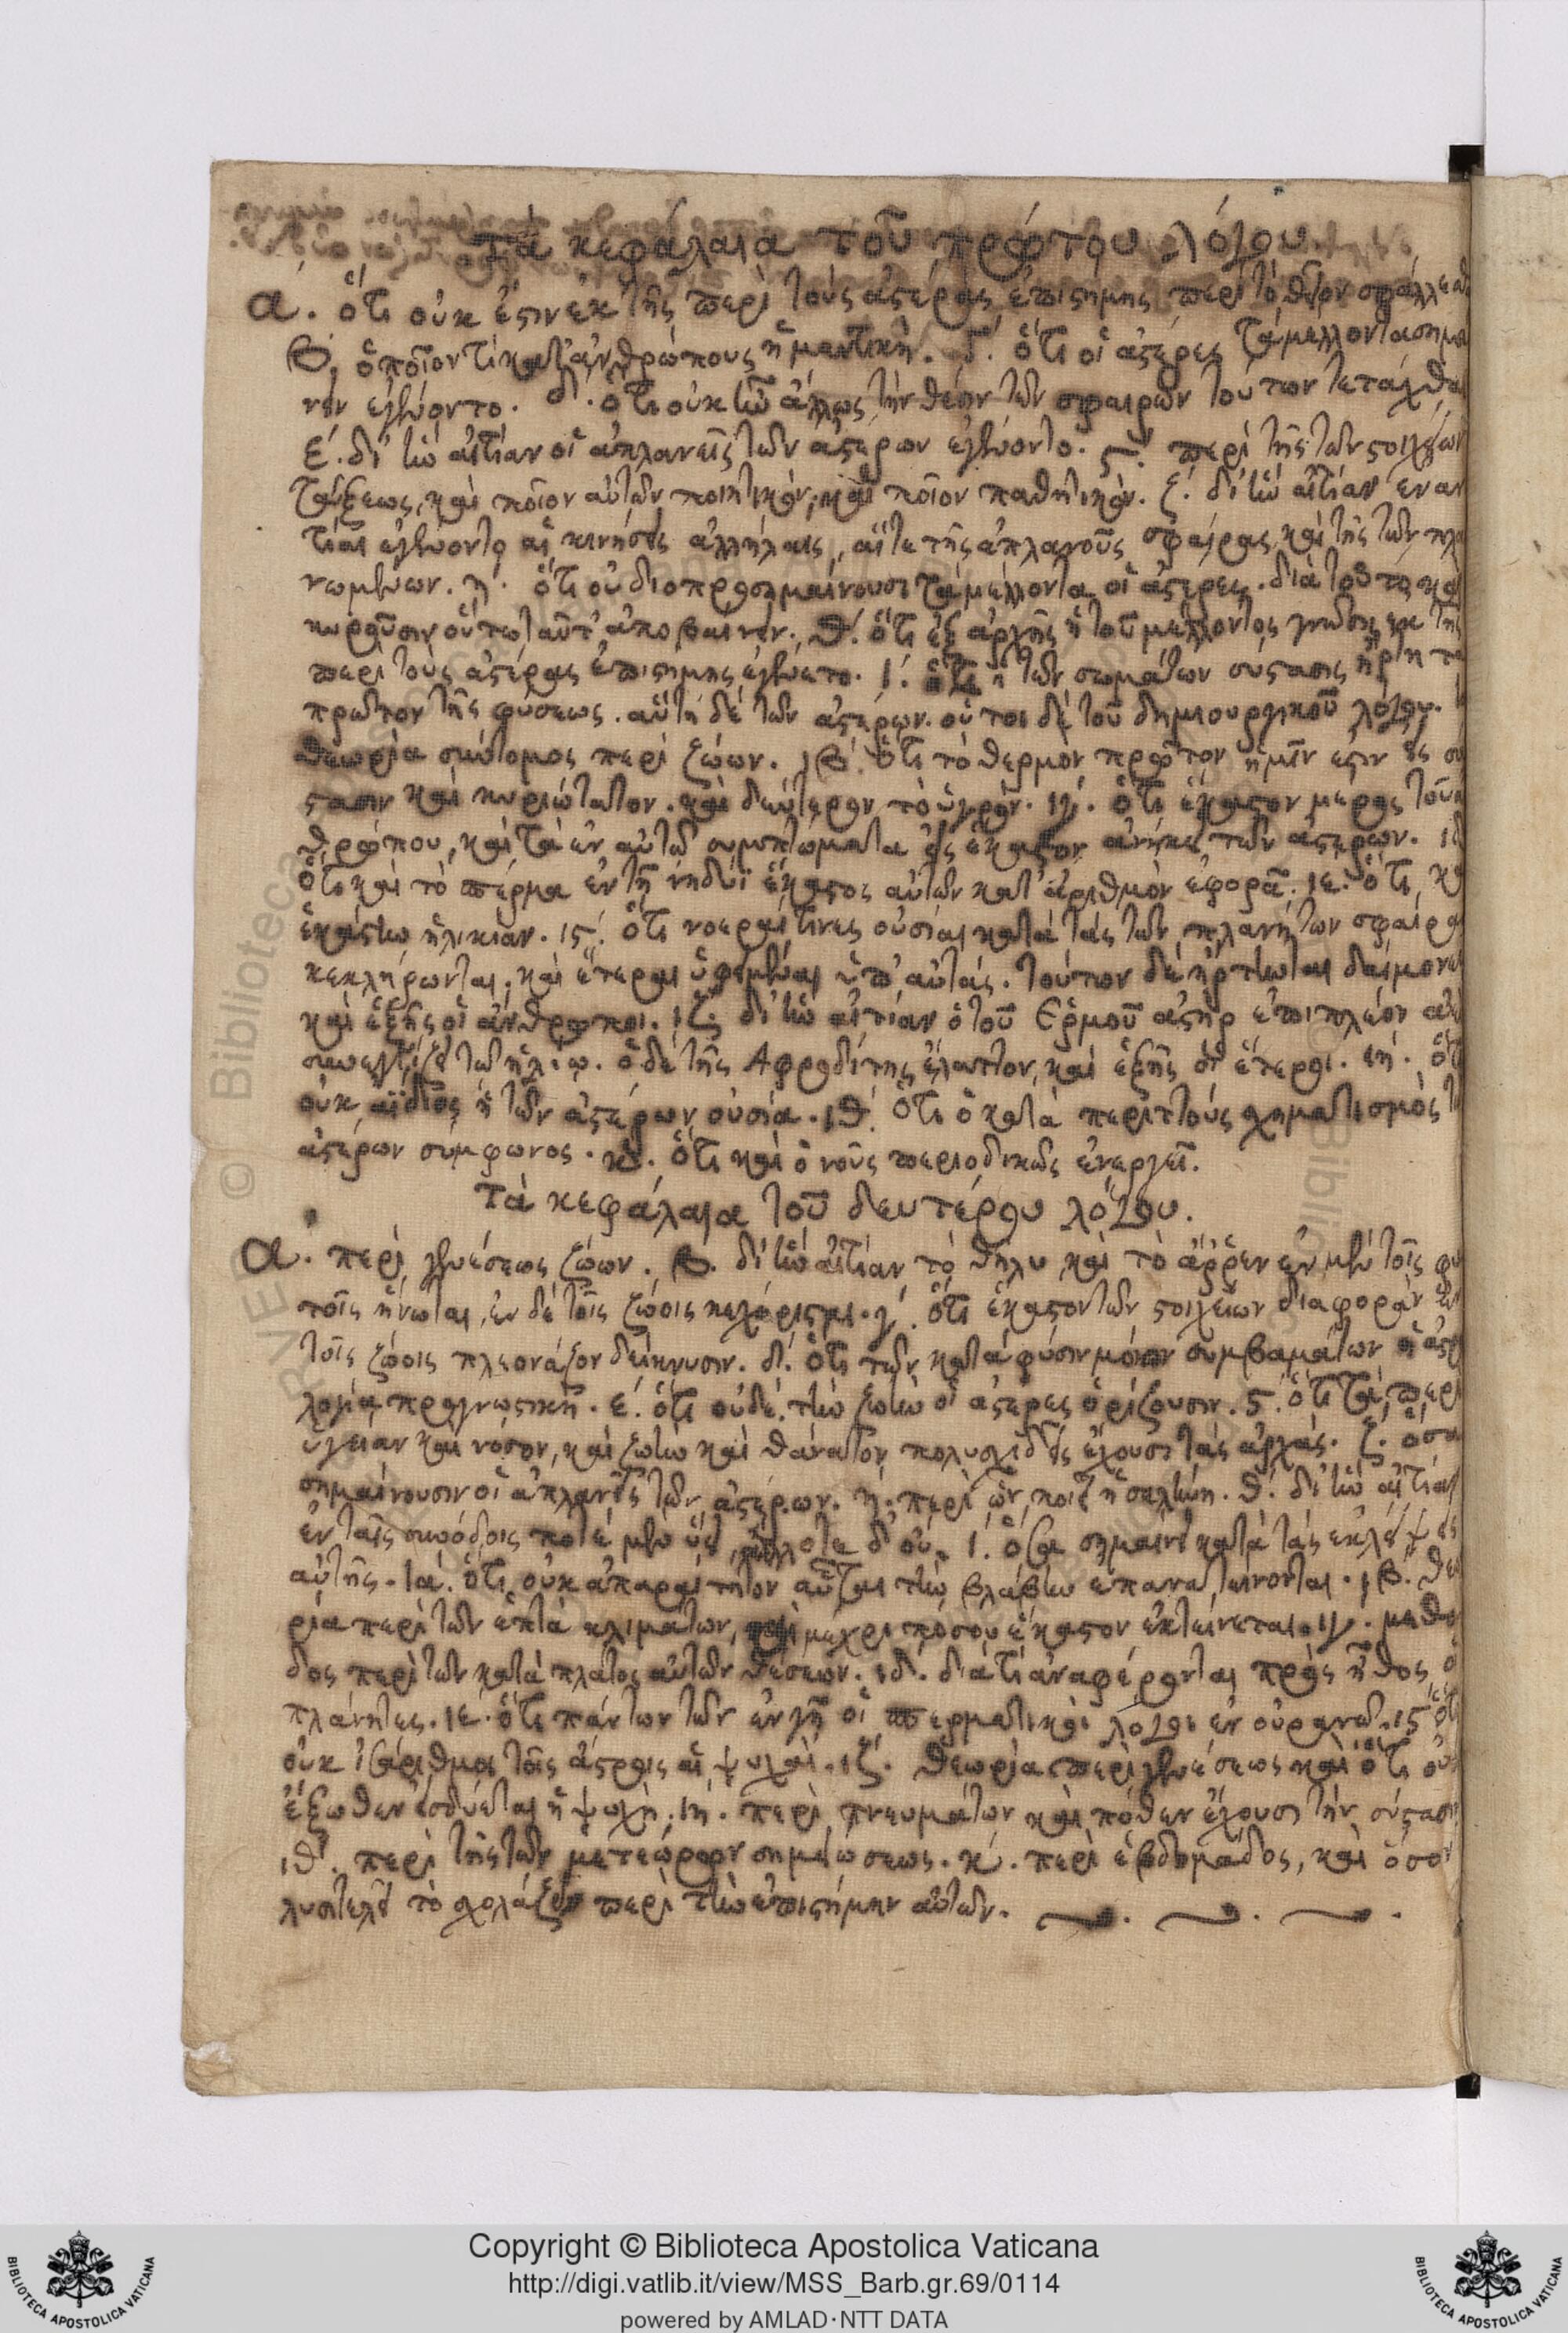 τὰ κεφάλαια τοῦ πρώτου λόγου.
α. ὅτι οὐκ ἔστιν ἐκ τῆς περὶ τοὺς ἀστέρας ἐπιστήμης περὶ τὸ θεῖον σφάλλεσθ
β. ὁποῖόν τι κατ' ἀνθρώπους ἡ μαντική. γ. ὅτι οἱ ἀστέρες τὰ μέλλοντα σημα
νεῖν ἐγένοντο. δ. ὅτι οὐκ ἦν ἄλλως τὴν θέσιν τῶν σφαιρῶν τούτων τετάχθαι
ε. δι' ἣν αἰτίαν οἱ ἀπλανεῖς τῶν ἀστέρων ἐγένοντο. ς. περὶ τῆς τῶν στοιχείων
τάξεως, καὶ ποῖον αὐτῶν ποιητικὸν, καὶ ποῖον παθητικόν. ζ. δι' ἣν αἰτίαν ἐναν
τίαι ἐγένοντο αἱ κινήσεις ἀλλήλαις, αἵ τε τῆς ἀπλανοῦς σφαίρας, καὶ τῆς τῶν πλα
νωμένων. η. ὅτι οὐ διὸ προσημαίνουσι τὰ μέλλοντα οἱ ἀστέρες. διὰ τοῦτο καὶ
κυροῦσιν οὕτω ταῦτ' ἀποβαίνειν. θ. ὅτι ἐξ ἀρχῆς ἡ τοῦ μέλλοντος γνῶσις ἐκ τῆς
περὶ τοὺς ἀστέρας ἐπιστήμης ἐγένετο. ι. ὅτι ἡ τῶν σωμάτων σύστασις ἤρτηται
πρῶτον τῆς φύσεως. αὕτη δὲ τῶν ἀστέρων. οὗτοι δὲ τοῦ δημιουργικοῦ λόγου.
θεωρία σύντομος περὶ ζώων. ιβ. ὅτι τὸ θερμὸν πρῶτον ἡμῖν ἐστιν εἰς σύ
στασιν καὶ κυριώτατον. καὶ δεύτερον τὸ ὑγρόν. ιγ. ὅτι ἕκαστον μέρος τοῦ ἀ
θρώπου, καὶ τὰ ἐν αὐτῷ συμπτώματα εἰς ἕκαστον ἀνήκει τῶν ἀστέρων. ιδ
ὅτι καὶ τὸ σπέρμα ἐν τῇ νηδύϊ ἕκαστος αὐτῶν κατ' ἀριθμὸν ἐφορᾷ. ιε. ὅτι κα
ἑκάστην ἡλικίαν. ις. ὅτι νοεραί τινες οὐσίαι κατὰ τὰς τῶν πλανήτων σφαίρας
κεκλήρωνται. καὶ ἕτεραι ὑφειμέναι ὑπ' αὐτάς. τούτων δὲ ἤρτηνται δαίμονες
καὶ ἑξῆς οἱ ἄνθρωποι. ιζ. δι' ἣν αἰτίαν ὁ τοῦ Ἑρμοῦ ἀστὴρ ἐπιπλέον ἀεὶ
συνεγγίζει τῷ ἡλίῳ. ὁ δὲ τῆς Ἀφροδίτης ἔλαττον, καὶ ἑξῆς οἱ ἕτεροι. ιη. ὅτι
οὐκ ἀΐδιος ἡ τῶν ἀστέρων οὐσία. ιθ. ὅτι ὁ κατὰ περιττοὺς σχηματισμὸς τῶν
ἀστέρων σύμφωνος. κ. ὅτι καὶ ὁ νοῦς περιοδικῶς ἐνεργεῖ.
τὰ κεφάλαια τοῦ δευτέρου λόγου.
α. περὶ γενέσεως ζώων. β. δι' ἣν αἰτίαν τὸ θῆλυ καὶ τὸ ἄῤῥεν ἐν μὲν τοῖς φυ
τοῖς ἥνωται, ἐν δὲ τοῖς ζώοις κεχώρισται. γ. ὅτι ἕκαστον τῶν στοιχείων διαφορὰν ἐν
τοῖς ζώοις πλεονάζον δείκνυσιν. δ. ὅτι τῶν κατὰ φύσιν μόνον συμβαμάτων ἡ ἀστρο
λογία προγνωστική. ε. ὅτι οὐδὲ τὴν ζωὴν οἱ ἀστέρες ὁρίζουσιν. ς. ὅτι τὰ περὶ
ὑγείαν καὶ νόσον, καὶ ζωὴν καὶ θάνατον πολυσχιδεῖς ἔχουσι τὰς ἀρχάς. ζ. ὅσα
σημαίνουσιν οἱ ἀπλανεῖς τῶν ἀστέρων. η. περὶ ὧν ποιεῖ ἡ σελήνη. θ. δι' ἣν αἰτίαν
ἐν ταῖς συνόδοις ποτὲ μὲν ὕει, ἄλλοτε δ' οὔ. ι. ὅσα σημαίνει κατὰ τὰς ἐκλείψεις
αὐτῆς. ια. ὅτι οὐκ ἀπαραίτητον αὗται τὴν βλάβην ἐπανατείνονται. ιβ. θεω
ρία περὶ τῶν ἑπτὰ κλιμάτων, καὶ μέχρι πόσου ἕκαστον ἐκτείνεται. ιγ. μέθο
δος περὶ τῶν κατὰ πλάτος αὐτῶν θέσεων. ιδ. διὰ τί ἀναφέρονται πρὸς ἦθος οἱ
πλάνητες. ιε. ὅτι πάντων τῶν ἐν γῇ οἱ σπερματικοὶ λόγοι ἐν οὐρανῷ. ις ὅτι
οὐκ ἰσάριθμοι τοῖς ἄστροις αἱ ψυχαί. ιζ. θεωρία περὶ γενέσεως καὶ ὅτι οὐκ
ἔξωθεν εἰσδύεται ἡ ψυχή. ιη. περὶ πνευμάτων καὶ πόθεν ἔχουσι τὴν σύστασιν
ιθ. περὶ τῆς τῶν μετεώρων σημειώσεως. κ. περὶ ἑβδομάδος, καὶ ὅσον
λυσιτελεῖ τὸ σχολάζειν περὶ τὴν ἐπιστήμην αὐτῶν.
Copyright © Biblioteca Apostolica Vaticana
http://digi.vatlib.it/view/MSS_Barb.gr.69/0114
powered by AMLAD·NTT DATA